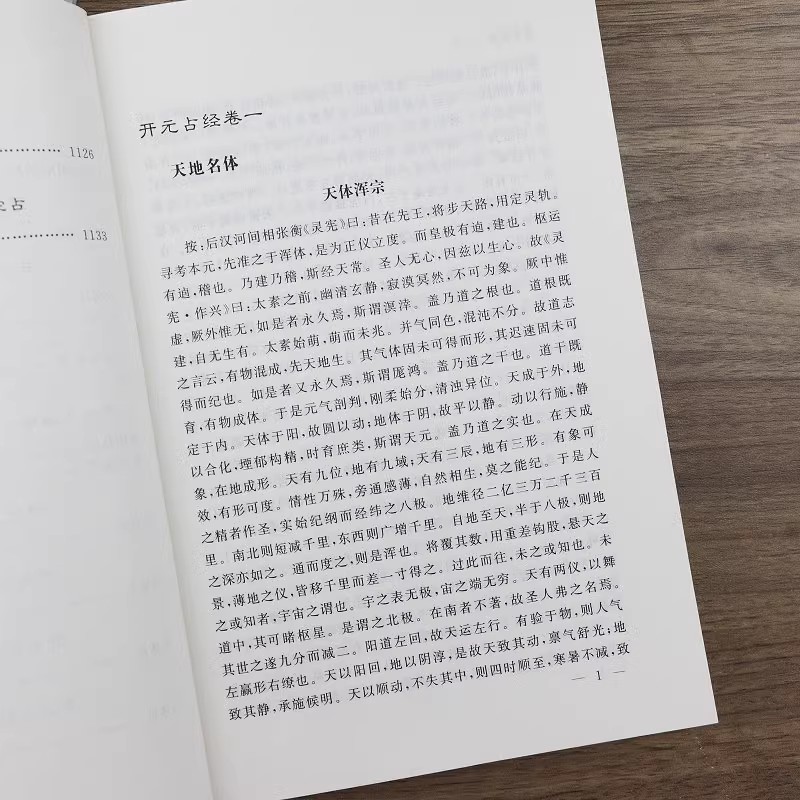 1126
之占
1133
开元占经卷一
天地名体
天体浑宗
按:后汉河间相张衡《灵宪》曰:昔在先王,将步天路,用定灵轨。
寻考本元,先准之于浑体,是为正仪立度。而皇极有迪,建也。枢运
有迪,稽也。乃建乃稽,斯经天常。圣人无心,因兹以生心。故《灵
宪·作兴》曰:太素之前,幽清玄静,寂漠冥然,不可为象。厥中惟
虚,厥外惟无,如是者永久焉,斯谓溟涬。盖乃道之根也。道根既
建,自无生有。太素始萌,萌而未兆。并气同色,混沌不分。故道志
之言云,有物混成,先天地生。其气体固未可得而形,其迟速固未可
得而纪也。如是者又永久焉,斯谓厖鸿。盖乃道之干也。道干既
育,有物成体。于是元气剖判,刚柔始分,清浊异位。天成于外,地
定于内。天体于阳,故圆以动;地体于阴,故平以静。动以行施,静
以合化,堙郁构精,时育庶类,斯谓天元。盖乃道之实也。在天成
象,在地成形。天有九位,地有九域;天有三辰,地有三形。有象可
效,有形可度。情性万殊,旁通感薄,自然相生,莫之能纪。于是人
之精者作圣,实始纪纲而经纬之八极。地维径二亿三万二千三百
里。南北则短减千里,东西则广增千里。自地至天,半于八极,则地
之深亦如之。通而度之,则是浑也。将覆其数,用重差钩股,悬天之
景,薄地之仪,皆移千里而差一寸得之。过此而往,未之或知也。未
之或知者,宇宙之谓也。宇之表无极,宙之端无穷。天有两仪,以舞
道中,其可睹枢星。是谓之北极。在南者不著,故圣人弗之名焉。
其世之遂九分而减二。阳道左回,故天运左行。有验于物,则人气
左赢形右缭也。天以阳回,地以阴淳,是故天致其动,禀气舒光;地
致其静,承施候明。天以顺动,不失其中,则四时顺至,寒暑不减,致
— 1 —